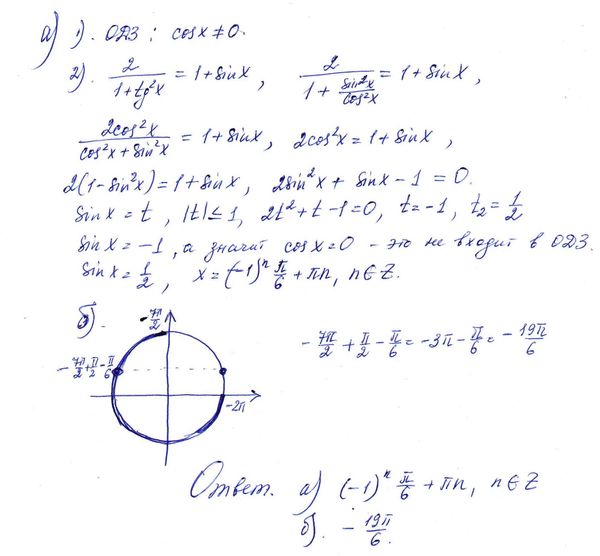 а) 1). ОДЗ: cosx≠0.
2). 2/(1+tg²x) = 1+sinx, 2/(1+sin²x/cos²x) = 1+sinx,
2cos²x/(cos²x+sin²x) = 1+sinx, 2cos²x=1+sinx,
2(1-sin²x)=1+sinx, 2sin²x+sinx-1=0.
sinx=t, |t|≤1, 2t²+t-1=0, t=-1, t₂=1/2
sinx=-1, а значит cosx=0 - это не входит в ОДЗ.
sinx=1/2, x=(-1)ⁿ π/6+πn, n∈Z.
б).
-7π/2
-7π/2+π/2-π/6
-2π
-7π/2+π/2-π/6=-3π-π/6=-19π/6
Ответ. а) (-1)ⁿ π/6+πn, n∈Z
б). -19π/6.